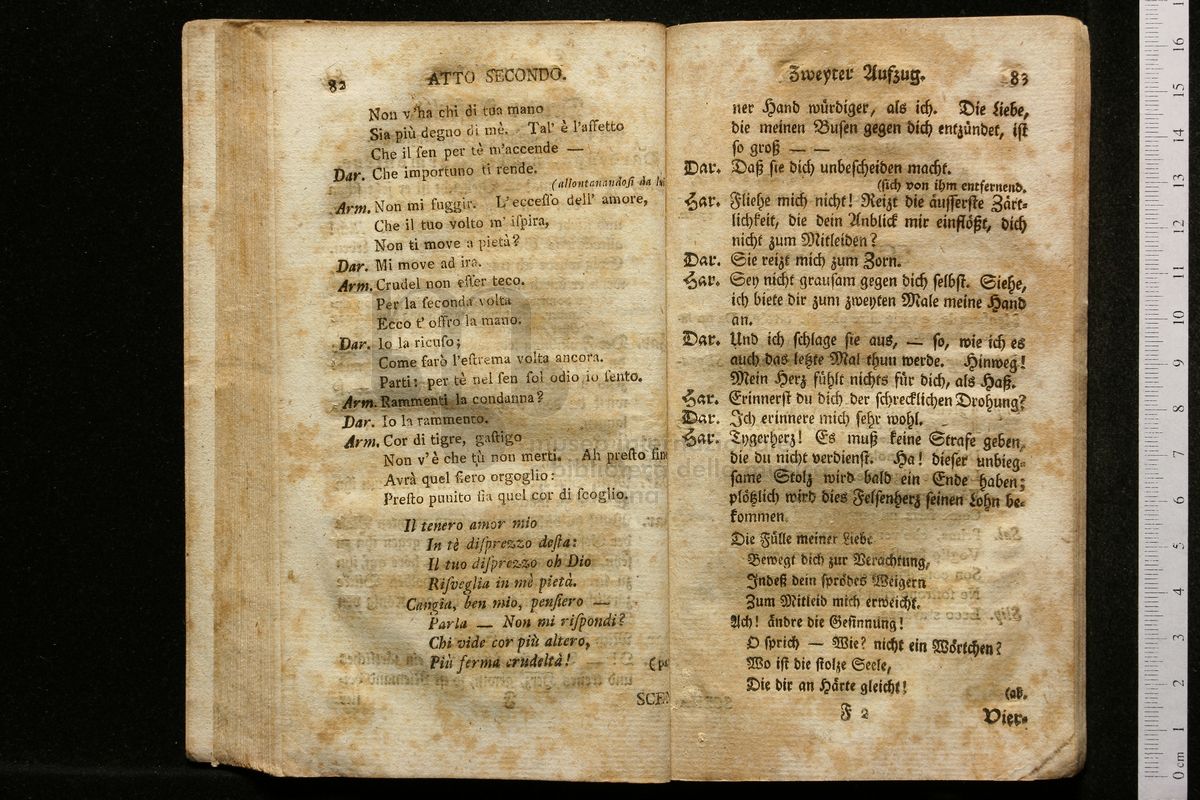 82 ATTO SECONDO.
Non v'ha chi di tua mano
Sia più degno di mè. Tal' è l'affetto
Che il ſen per tè m'accende —
Dar. Che importuno ti rende.
(allontanandoſi da
Arm. Non mi fuggir. L'ecceſſo dell' amore,
Che il tuo volto m' iſpira,
Non ti move a pietà?
Dar. Mi move ad ira.
Arm. Crudel non eſſer teco.
Per la ſeconda volta
Ecco t' offro la mano.
Dar. Io la ricuſo;
Come farò l'eſtrema volta ancora.
Parti: per tè nel ſen ſol odio io ſento.
Arm. Rammenti la condanna?
Dar. Io la rammento.
Arm. Cor di tigre, gaſtigo
Non v'è che tù non merti. Ah preſto fine
Avrà quel fiero orgoglio:
Preſto punito ſia quel cor di ſcoglio.
Il tenero amor mio
In tè diſprezzo deſta:
Il tuo diſprezzo oh Dio
Riſveglia in mè pietà.
Cangia, ben mio, penſiero —
Parla — Non mi riſpondi?
Chi vide cor più altero,
Più ferma crudeltà!
SCEN
Zweyter Aufzug. 83
ner Hand würdiger, als ich. Die Liebe,
die meinen Buſen gegen dich entzündet, iſt
ſo groß — —
Dar. Daß ſie dich unbeſcheiden macht.
(ſich von ihm entfernend.
Har. Fliehe mich nicht! Reizt die äuſſerſte Zärt-
lichkeit, die dein Anblick mir einflößt, dich
nicht zum Mitleiden?
Dar. Sie reizt mich zum Zorn.
Har. Sey nicht grauſam gegen dich ſelbſt. Siehe,
ich biete dir zum zweyten Male meine Hand
an.
Dar. Und ich ſchlage ſie aus, — ſo, wie ich es
auch das letzte Mal thun werde. Hinweg!
Mein Herz fühlt nichts für dich, als Haß.
Har. Erinnerſt du dich der ſchrecklichen Drohung?
Dar. Ich erinnere mich ſehr wohl.
Har. Tygerherz! Es muß keine Strafe geben,
die du nicht verdienſt. Ha! dieſer unbieg-
ſame Stolz wird bald ein Ende haben;
plötzlich wird dies Felſenherz ſeinen Lohn be-
kommen.
Die Fülle meiner Liebe
Bewegt dich zur Verachtung,
Indeß dein ſprödes Weigern
Zum Mitleid mich erweicht.
Ach! ändre die Geſinnung!
O ſprich — Wie? nicht ein Wörtchen?
Wo iſt die ſtolze Seele,
Die dir an Härte gleicht!
(ab.
F 2 Vier-